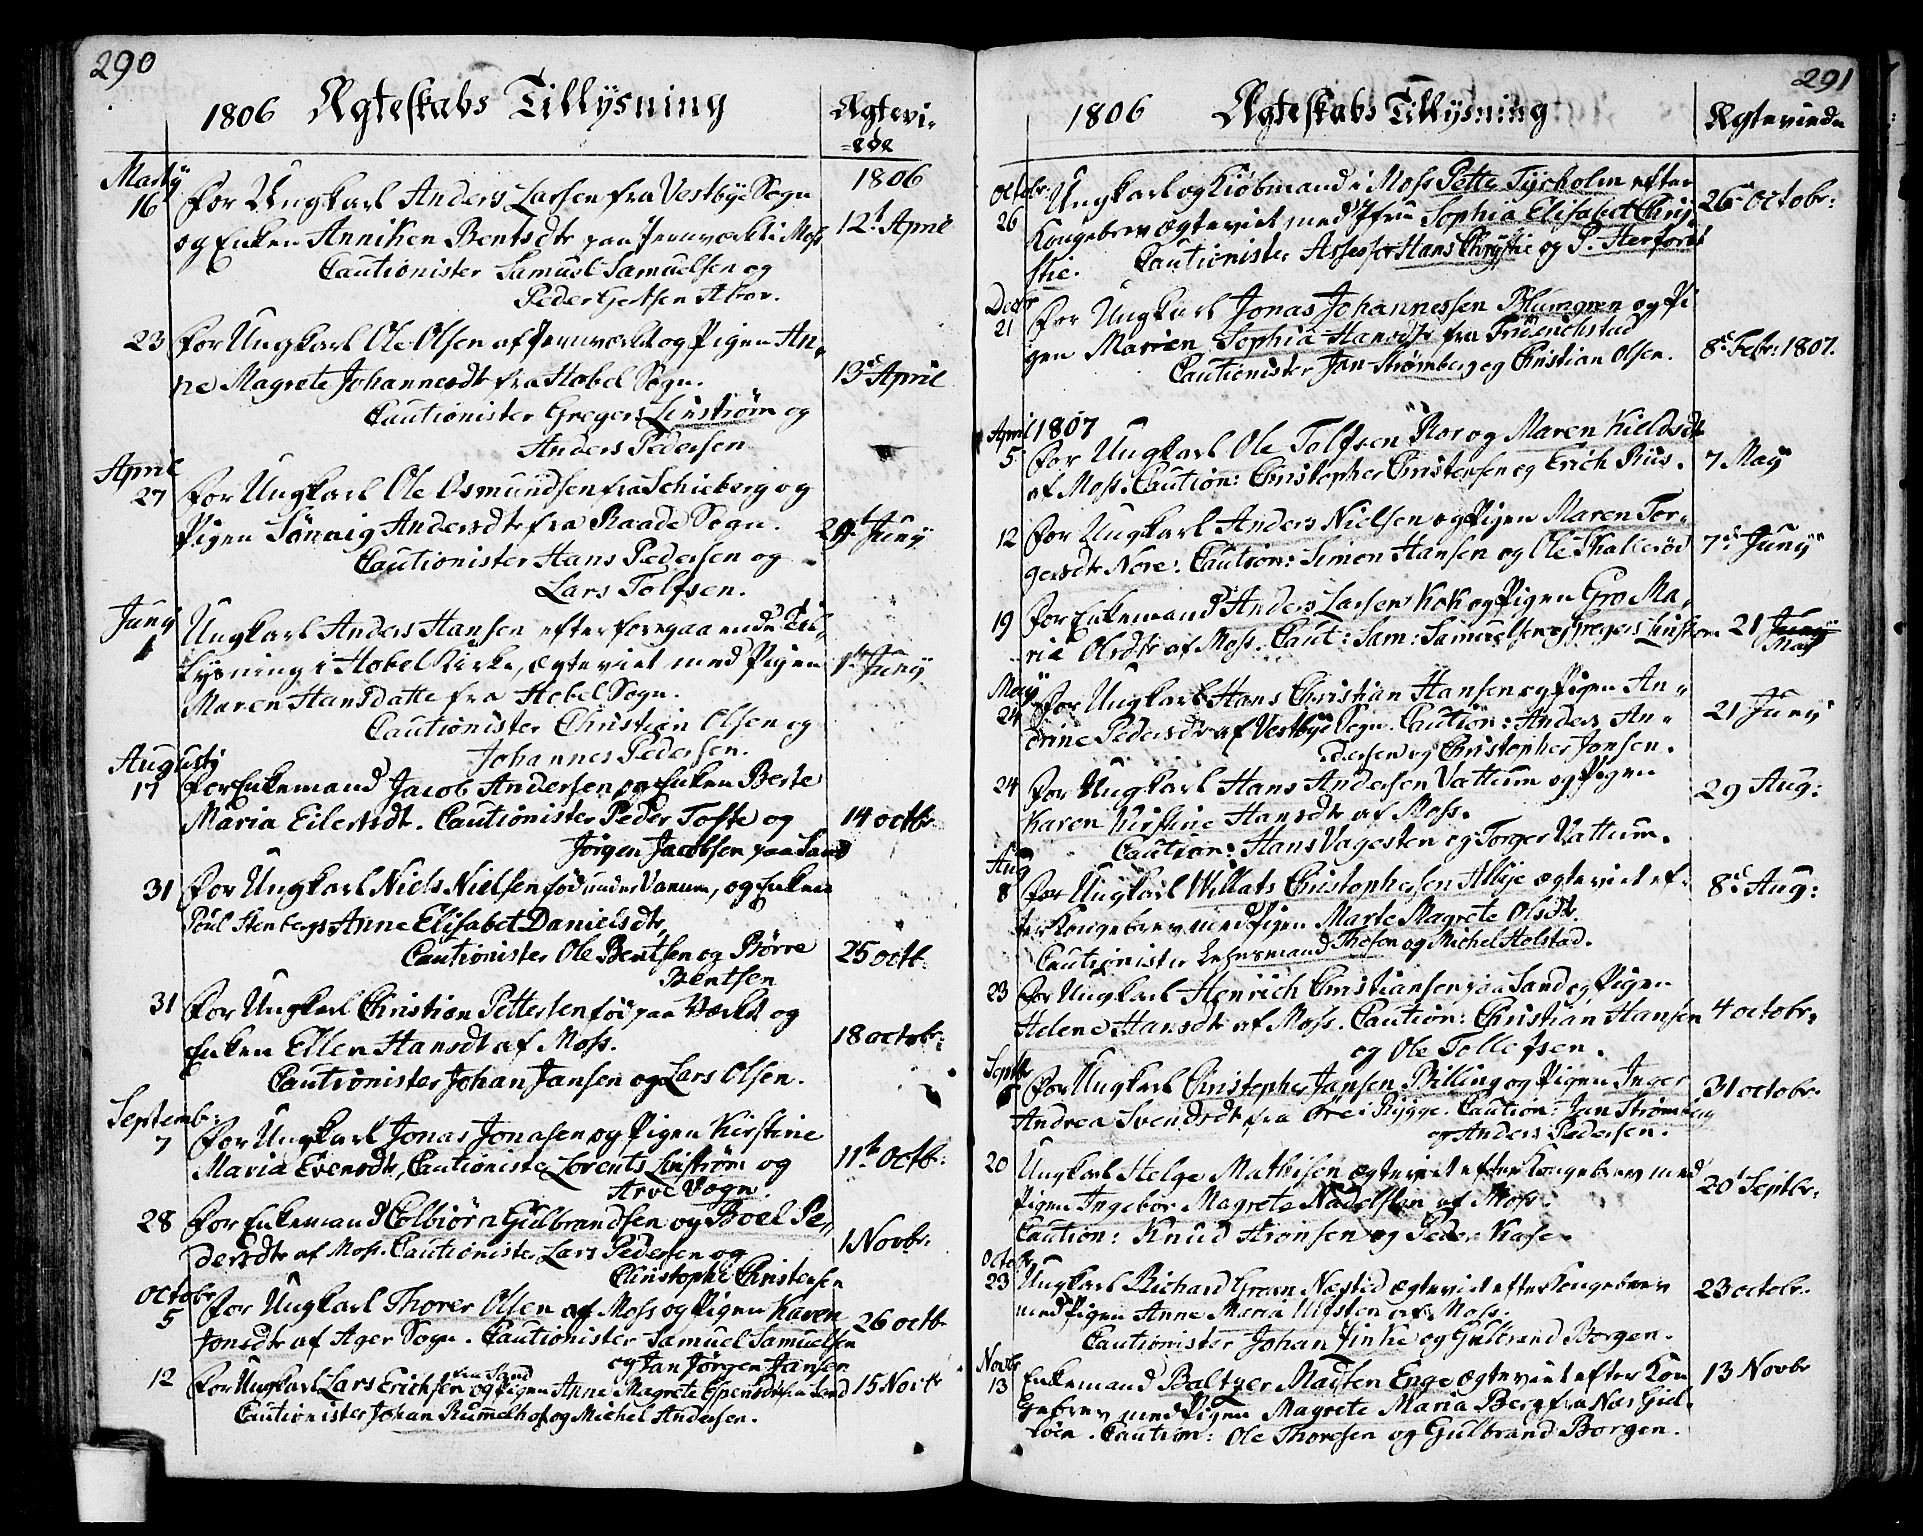 290
1806 Ægteskabs Tillysning
Ægtevi-
=ede
Marty
16 For Ungkarl Anders Larsen fra Vestbye Sogn
1806
og Enken Anniken Bentsdtr paa Jernværket i Moss
12t April
Cautionister Samuel Samuelsen og
Peder Gertsen
23 For Ungkarl Ole Olsen af Jernværket og Pigen An-
ne Magrete Johannesdtr fra Hobel Sogn.
13d April
Cautionister Gregers Linstrøm og
Anders Pedersen
April
27 For Ungkarl Ole Osmundsen fra Schieberg og
Pigen Sönnig Andersdtr fra Raade Sogn.
29t Juny
Cautionister Hans Pedersen og
Lars Tolfsen.
Juny
1 Ungkarl Anders Hansen efter foregaaende Til-
lysning i Hobel Kirke, ægteviet med Pigen
1t Juny
Maren Hansdatte fra Hobel Sogn.
Cautionister Christian Olsen og
Johannes Pedersen.
Augusty
17 For Enkemand Jacob Andersen og Enken Berte
Maria Eilertsdt. Cautionister Peder Tofte og
14 octbr
Jörgen Jacobsen paa Sand
31 For Ungkarl Niels Nielsen fød under Vanum, og Enken
Poul Stenbergs Anne Elisabet Danielsdtr,
Cautionister Ole Bentsen og Börre
25 octb:
Bentsen
31 For Ungkarl Christian Pettersen fød paa Værket og
Enken Ellen Hansdt af Moss.
18 octobr:
Cautionister Johan Jansen og Lars Olsen.
Septembr:
7 For Ungkarl Jonas Jonasen og Pigen Kirstine
Maria Evensdtr, Cautionister Lorents Linstrøm og
11t Octb:
Arve Vogn
28 For Enkemand Colbiörn Gulbrandsen og Boel Pe-
dersdtr af Moss. Cautionister Lars Pedersen og
1 Novbr:
Christophe Christensen
Octobr
5 For Ungkarl Thorer Olsen af Moss og Pigen Karen
Jonsdtr af Ager Sogn. Cautionister Samuel Samuelsen
26 octb
og Jan Jörgen Jansen
12 For Ungkarl Lars Erichsen fra Sand og Pigen Anne Magrete Espensdtr fra Sand
15 Novbr
Cautionister Johan Rummelhof og Michel Andersen.
291
1806 Ægteskabs Tillysning
Ægteviede
Octobr
26 Ungkarl og Kiöbmand i Moss Pette Tyrholm efter
26d octobr:
Kongebrev ægteviet med Jfru Sophia Elisabet Chri-
stie. Cautionister Assessor Hans Chrystie og P. Herforth
Decbr
21 For Ungkarl Jonas Johannessen Blumgren og Pi
gen Maren Sophia Hansdtr fra Friderichstad
8d Febr: 1807.
Cautionister Jan Strømberg og Christian Olsen.
1807
April
5 For Ungkarl Ole Tolfsen Roer og Maren Kieldsdtr
7 May
af Moss. Caution: Christopher Christensen og Erich Riis.
12 For Ungkarl Anders Nielsen og Pigen Maren Tor-
gersdtr Nore. Caution: Simon Hansen og Ole Skallerød
7d Juny
19 For Enkemand Anders Larsen Kok og Pigen Gro Ma-
ria Olsdtr af Moss. Caut: Sam: Samuelsen og Gregers Linstrøm
21 Juny May
May
24 For Ungkarl Hans Christian Hansen og Pigen An-
drine Pedersdtr af Vestbye Sogn. Caution: Anders An-
21 Juny
dersen og Christopher Jonsen.
24 For Ungkarl Hans Andersen Vattum og Pigen
29 Aug:
Karen Kirstine Hansdtr af Moss.
Caution: Hans Vagesten og Torger Vattum.
Aug
8 For Ungkarl Willats Christophersen Albye ægteviet ef-
8d Aug:
ter Kongebrev med Pigen Marte Magrete Olsdtr.
Cautionister Lehnsmand Thosen og Michel Holstad.
23 For Ungkarl Henrich Christiansen paa Sand og Pigen
Helene Hansdtr af Moss. Caution: Christian Hansen
4 octobr.
og Ole Tollefsen.
Septbr
For Ungkarl Christopher Jansen Billing og Pigen Inger
31 octobr.
Andrea Svendsdt fra Øre i Rygge. Caution: Jan Strømberg
og Anders Pedersen.
20 Ungkarl Helge Mathisen ægteviet efter Kongebrev med
20d Septbr:
Pigen Ingebor Magrete af Moss
Caution: Knud Aronsen og Peder Kase.
Octobr
23 Ungkarl Richard Gran Næstid ægteviet efter Kongebrev
23 octobr.
med Pigen Anne Maria Ulfsten af Moss.
Cautionister Johan Finke og Gulbrand Borgen.
Novbr
13 Enkemand Baltzer Madsen Enge ægteviet efter Kon
13 Novbr
gebrev med Pigen Magrete Maria Berg fra Næs Gul-
löen. Caution: Ole Thoresen og Gulbrand Borgen.